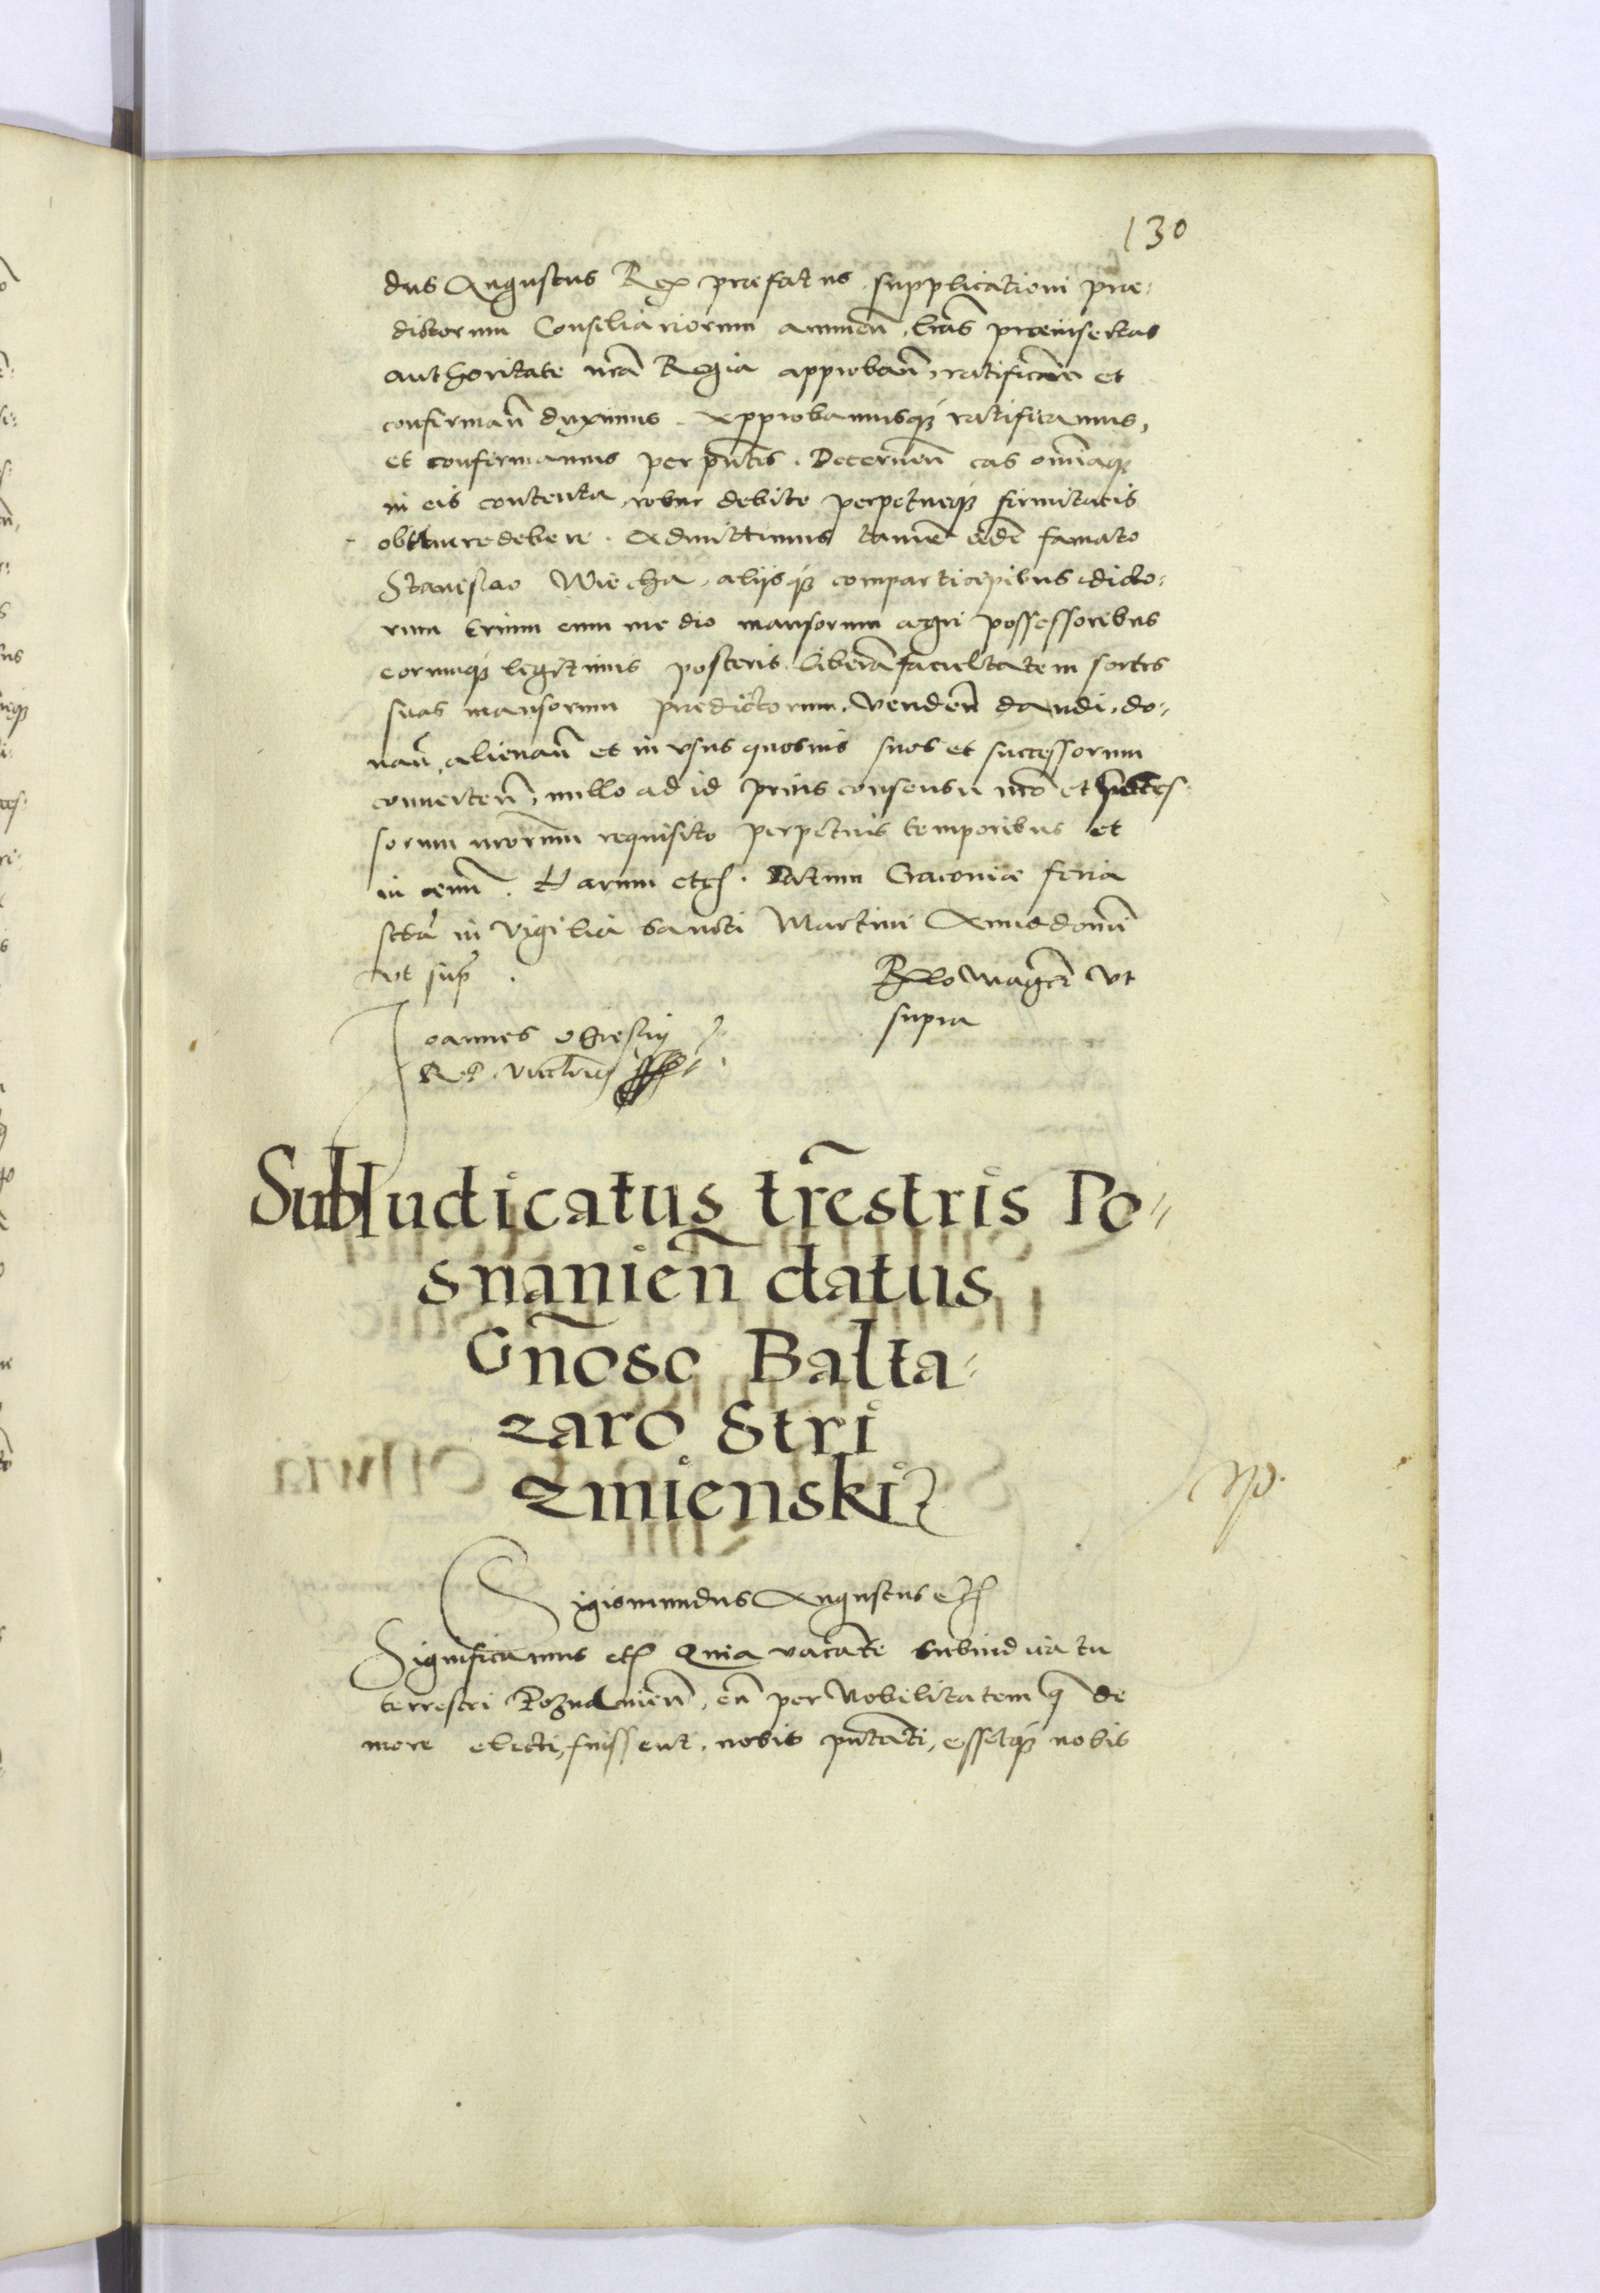 130
dus Augustus Rex præfatus supplicationi præ-
dictorum Consiliariorum annuen̄, lr̄as præinsertas
authoritate nr̄a Regia approban̄, ratifican̄ et
confirman̄ duximus. Approbamusq́ ratificamus,
et confirmamus per pn̄tis. Decernen̄ eas om̄iaq́
in eis contenta, robur debite perpetueq́ firmitatis
obtinere debere. Admittimus tamē eidē famato
Stanislao Wiecha, alijsq́ comparticipibus dicto-
rum trium cum medio mansorum agri possessoribus
eorumq́ legitimis posteris, liberā facultatem sortes
suas mansorum prædictorum, venden̄ dandi, do-
nan̄, alienan̄ et in vsus quosuis suos et successorum
conuerten̄, nullo ad id prius consensu nr̄o et succes-
sorum nr̄orum requisito perpetuis temporibus et
in æuū. Harum etcʒ. Datum Cracouiæ feria
scd̄a in vigilia sancti Martini Anno domī
vt sup̄.
R̄lo Magc̄i vt
supra
Joannes Ochieskij
R. P. vicecan̄
SubIudicatus tr̄estris Po-
snanien̄ datus
Gn̄oso Balta-
zaro Stri
zmienski
Sigismundus Augustus etcʒ
Significamus etcʒ Quia vacāte subiudicatu
terrestri Poznanien̄, cū per Nobilitatem q̄ de
more electi, fuissent, nobis pn̄tati, essetq́ nobis